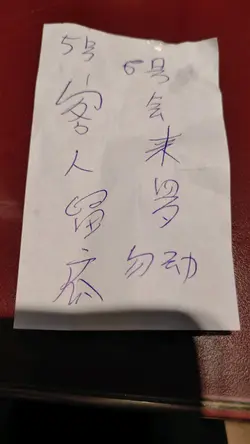 5号客人留底
6号会来 勿动